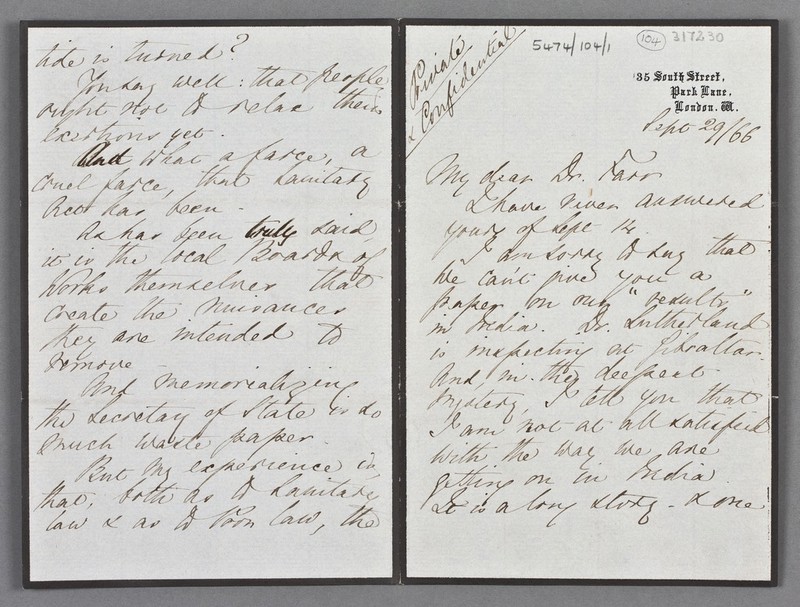 tide is turned?
You say well: that people
ought not to relax their
exertions yet.
And what a farce, a
cruel farce, that Sanitary
Act has been -
As has been truly said,
it is the local Boards of
Works themselves that
create the nuisances
they are intended to
remove
And memorializing
the Secretary of State is so
much waste paper.
But my experience is
that, both as to Sanitary
law & as to Poor law, the
Private
& Confidential
5474/104/1
104
317230
35 South Street,
Park Lane,
London. W.
Sept 29/66
My dear Dr. Farr
I have never answered
yours of Sept 12.
I am sorry to say that
we can't give you a
paper on our "results"
in India. Dr. Sutherland
is inspecting at Gibraltar.
And, in the deepest
mystery, I tell you that
I am not at all satisfied
with the way we are
getting on in India
It is a long story - & one